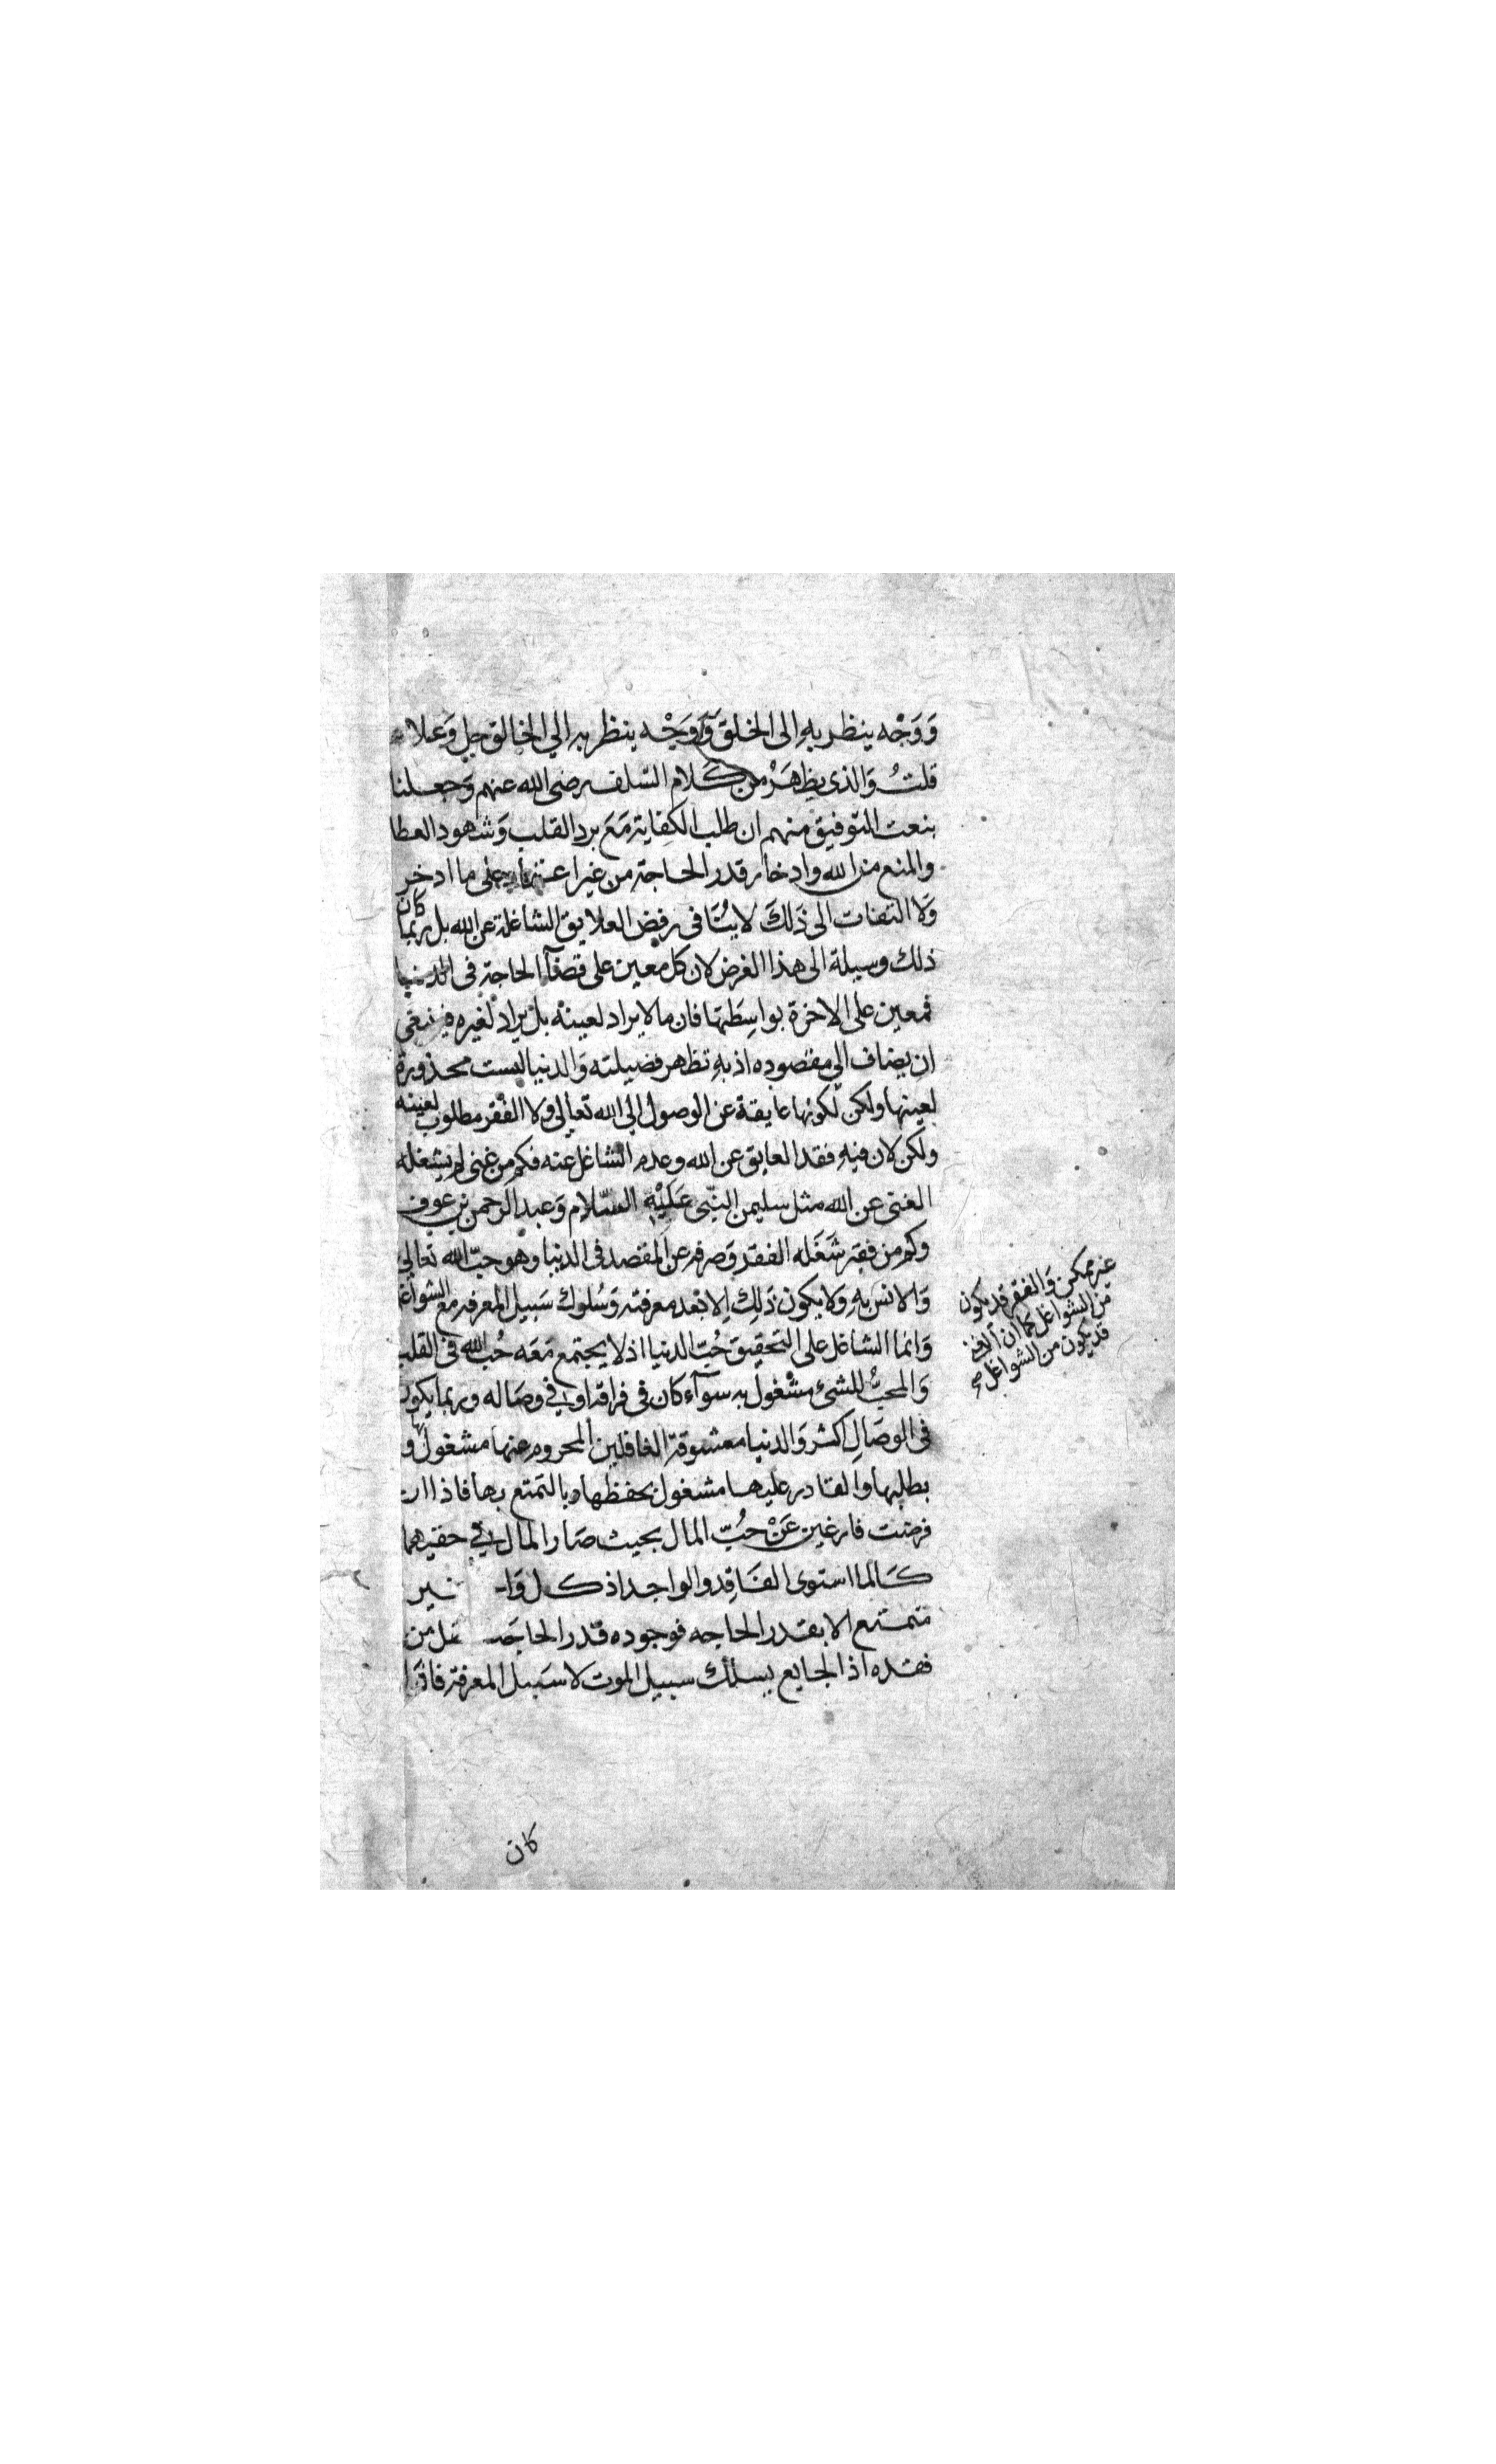 وَوَجْه ينظر بهِ إلى الخلق وَوَجْه ينظر به الي الخالق جل وَعلا
قلتُ وَالذى يظهَرُ من كَلام السّلف رضى الله عنهم وَجعلنا
بنعت التوفيق منهم ان طلب الكفاية مَعَ برد القلب وَشهود العطا
والمنع من الله وادخار قدر الحاجة من غير على ما ادخر
وَلا التفات الى ذَلكَ لا يُنَافى رفض العلايق الشاغلة عن الله بل ربما كان
ذلك وسيلة الى هذا الغرض لان كل معين على قضآ الحاجة فى الدنيا
فمعين على الاخرة بواسِطتها فان ما لا يراد لعينه بل يراد لغيره فينبغى
ان يضاف الى مقصوده اذ بهِ تظهر فضيلته وَالدنيا ليست محذورة
لعينها ولكن لكونها عايقة عن الوصول الي الله تعالى ولا الفقر مطلوب لعينه
ولكن لان فيهِ فقد العايق عن الله وعدم الشاغل عنه فكم من غنى لم يشغله
الغنى عن الله مثل سليمن النبى عَلَيْهِ السّلام وَعبد الرحمن بن عوف
وكم من فقير شَغَله الفقر وَصرفه عن المقصد فى الدنيا وهو حبّ الله تعالى
وَالانس بهِ وَلا يكون ذَلِك الا بَعد معرفته وَسُلوك سَبيل المعرفه مع الشواغل
غير ممكن وَالفقر قد يكون
من الشواغل كما ان الغنى
قد يكون من الشواغل صح
وَانما الشاغل على التحقيق حُبّ الدنيا اذ لا يجتمع مَعَه حُب الله فى القلب
وَالمحبُّ للشئ مشغول به سوآء كان فى فراقه او في وصَاله وربما يكون
فى الوصَالِ اكثر وَالدنيا معشوقة الغافلين المحروم عنها مشغول
بطلبها والقادر عليها مشغول بحفظها وبالتمتع بها فاذا ان
فرضت فارغين عَنْ حُبّ المال بحيث صَار المال في حقيهما
كَالما استوى الفَاقِد والواجد اذ كل غير
متمتع الا بقدر الحاجه فوجوده قدر الحاجَة من
فقده اذ الجايع يسلك سبيل الموت لا سَبيل المعرفة فاذا
كان